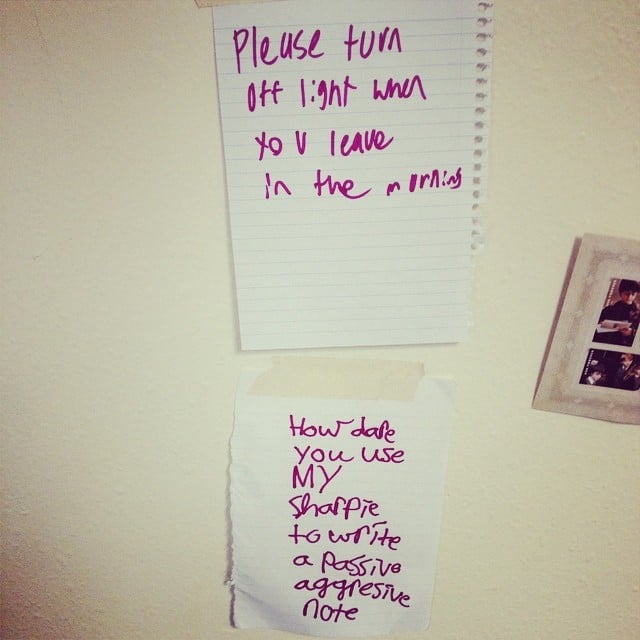 Please turn
off light when
you leave
in the morning
How dare
you use
MY
Sharpie
to write
a passive
aggresive
note